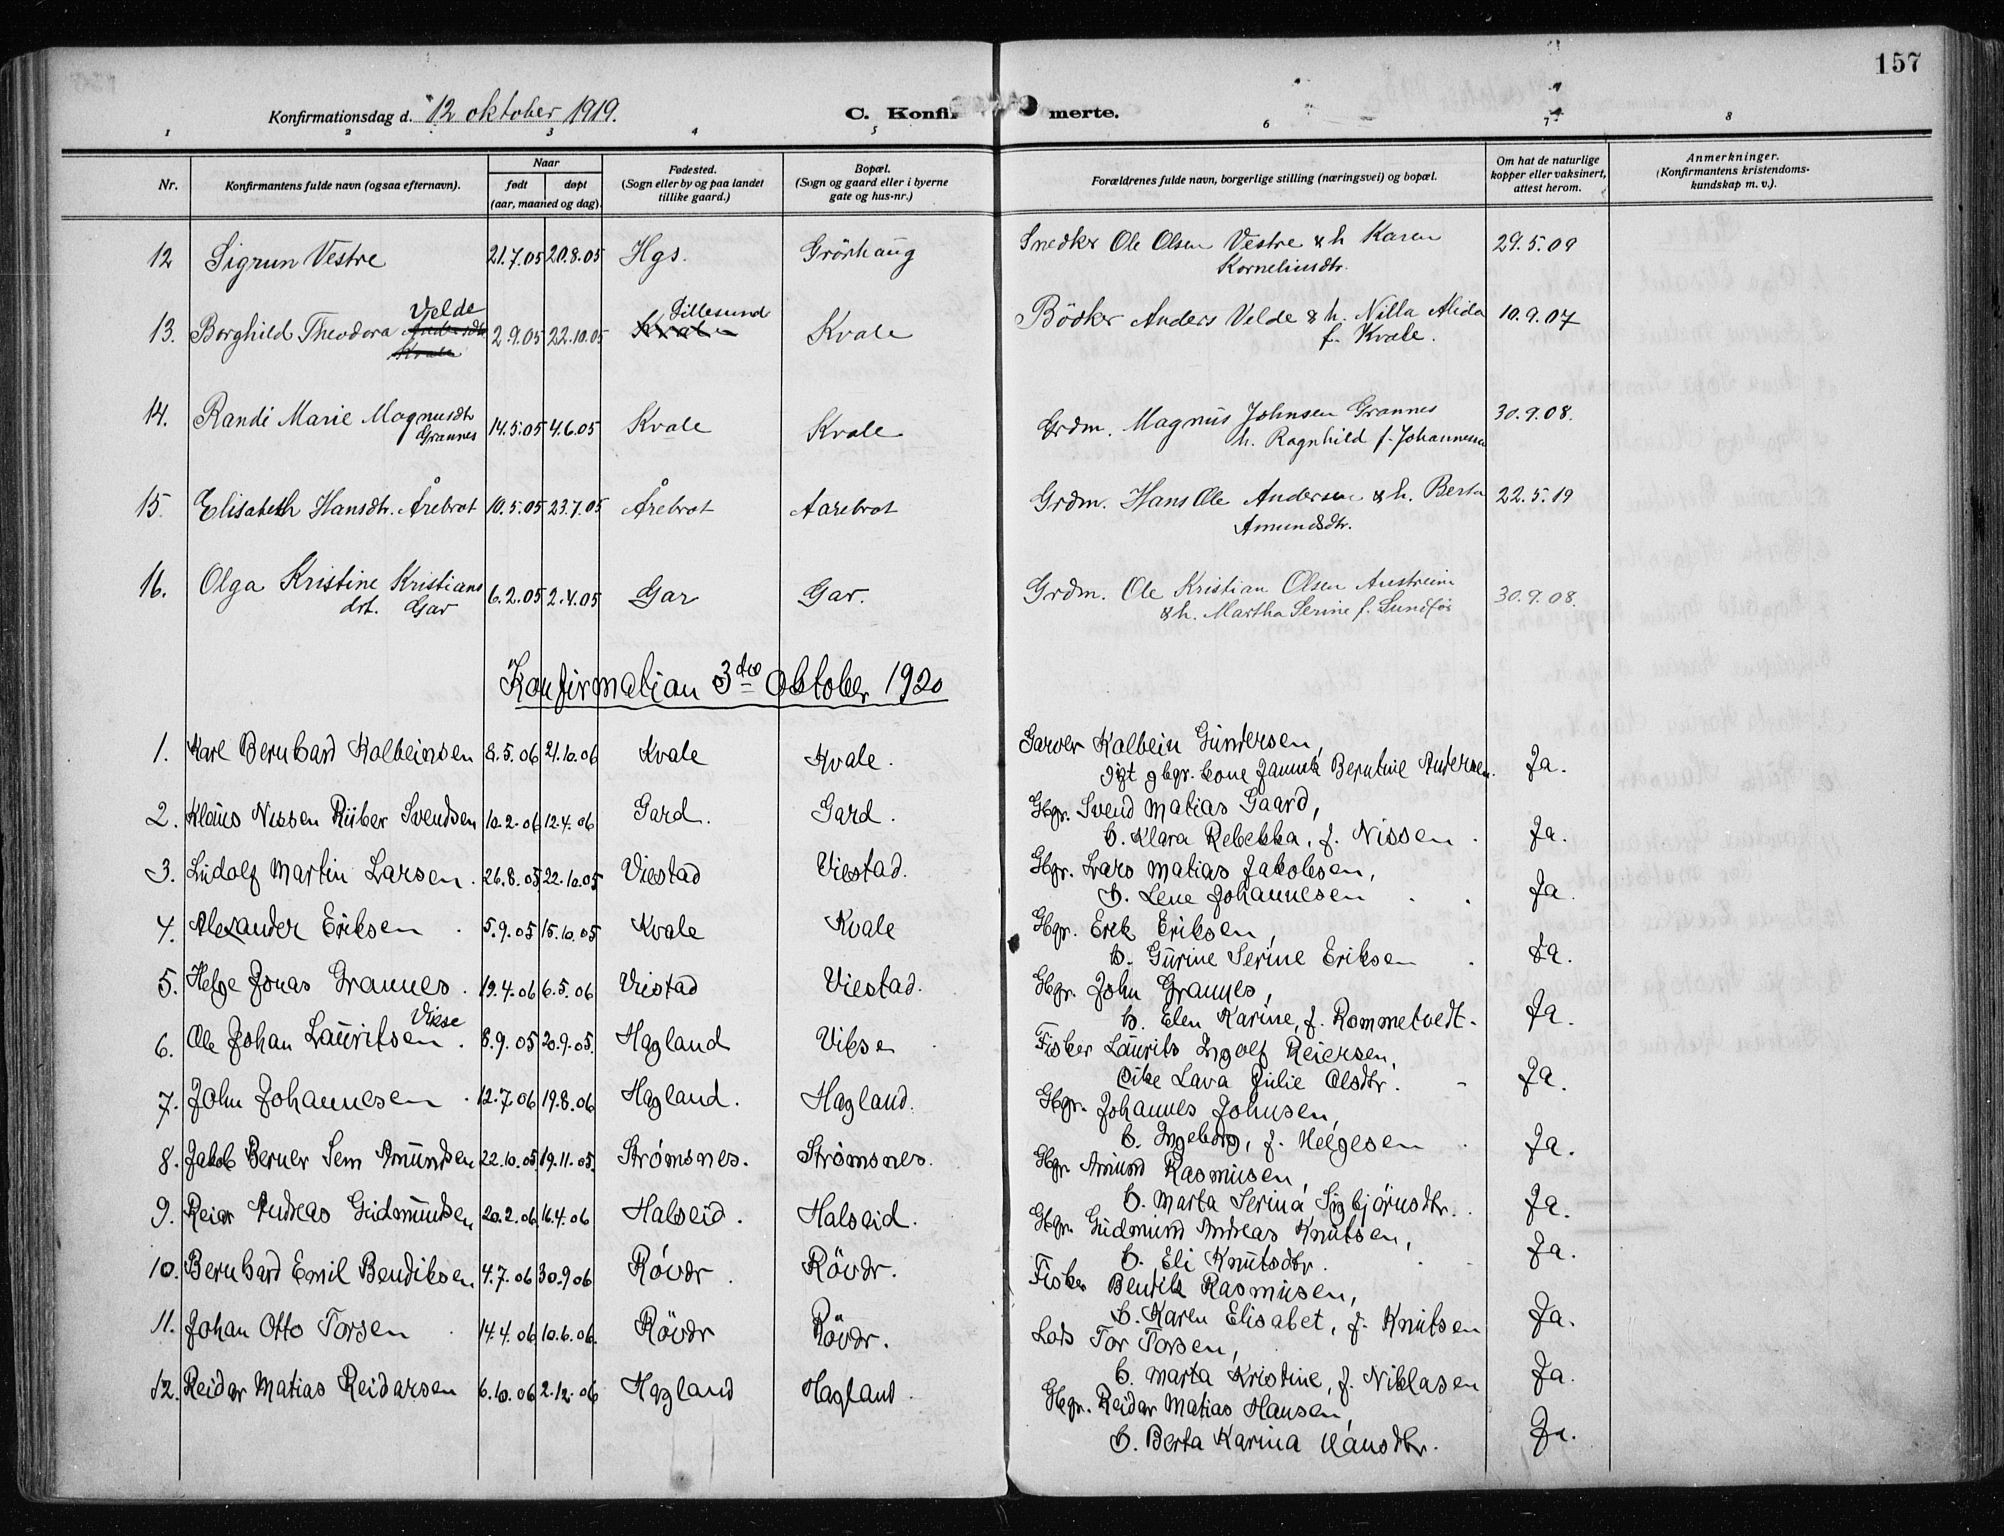 157
Konfirmationsdag d. 12 oktober 1919.
C. Konfirmerte.
1 2 3 4 5 6 7 8
Nr. Konfirmantens fulde navn (ogsaa efternavn). Naar født døpt (aar, maaned og dag). Fødested. (Sogn eller by og paa landet tillike gaard.) Bopæl. (Sogn og gaard eller i byerne gate og hus-nr.) Forældrenes fulde navn, borgerlige stilling (næringsvei) og bopæl. Om hat de naturlige kopper eller vaksinert, attest herom. Anmerkninger. (Konfirmantens kristendomskundskap m. v.).
12 Sigrun Vestre 21.7.05 20.8.05 Hgs. Grönhaug Snedker Ole Olsen Vestre & h Karen 29.5.09
Korneliusdtr.
13. Borghild Theodora Velde 2.9.05 22.10.05 Kvale Kvale Bödker Anders Velde & h. Nilla Alida 10.9.07
Kvale f. Kvale.
14. Randi Marie Magnusdtr 14.5.05 4.6.05 Kvale Kvale Grdm. Magnus Johnsen Grannes 30.9.08.
Grannes h. Ragnhild f. Johannessen
15. Elisabeth Hansdtr. Årebrot 10.5.05 23.7.05 Årebrot Aarebrot Grdm. Hans Ole Andersen & h. Berta 22.5.19
Amundsdtr.
16. Olga Kristine Kristians 6.2.05 2.4.05 Gar Gar. Grdm. Ole Kristian Olsen Austreim 30.9.08.
drt. Gar & h. Martha Serine f. Lundför
Konfirmation 3die Oktober 1920
1. Karl Bernhard Kolbeinsen 8.5.06 21.10.06 Kvale Kvale. Garver Kolbein Gundersen, Ja.
Berntine Andersen.
2. Klaus Nissen Riiber Svendsen 10.2.06 12.4.06 Gard. Gard. Gbgr. Svend Matias Gaard, Ja.
h. Klara Rebekka, f. Nissen.
3. Ludolf Martin Larsen. 26.8.05 22.10.05 Viestad Viestad. Gbgr. Lars Matias Jakobsen, Ja.
h. Lene Johannesen
4. Alexander Eriksen. 5.9.05 15.10.05 Kvale Kvale Gbgr. Erik Eriksen, Ja.
h. Gurine Serine Eriksen
5. Helge Jonas Grannes. 19.4.06 6.5.06 Viestad Viestad. Gbgr. John Grannes, Ja.
h. Elen Karine, f. Rommetvedt.
6. Ole Johan Lauritsen Vikse. 8.9.05 20.9.05. Hagland Vikse Fisker Laurits Ingolf Reiersen, Ja.
Lava Julie Olsdtr.
7. John Johannesen. 12.7.06 19.8.06 Hagland. Hagland. Gbgr. Johannes Johnsen, Ja.
h. Ingeborg, f. Helgesen
8. Jakob Berner Sem Amundsen 22.10.05 19.11.05. Strømsnes. Strømsnes. Gbgr. Amund Rasmusen, Ja.
h. Marta Serina Sigbjörnsdtr.
9. Reidar Andreas Gudmundsen 20.2.06 16.4.06 Halseid. Halseid. Gbgr. Gudmund Andreas Knutsen, Ja.
h. Eli Knutsdtr.
10. Bernhard Emil Bendiksen 4.7.06 30.9.06 Røvær. Røvær. Fisker Bendik Rasmusen, Ja.
h. Karen Elisabet, f. Knutsen
11. Johan Otto Torsen. 14.4.06 10.6.06. Røvær Røvær. Lods Tor Torsen, Ja.
h. Marta Kristine, f. Niklasen
12. Reidar Matias Reidarsen 6.10.06 2.12.06 Hagland Hagland. Gbgr. Reidar Matias Hansen, Ja.
h. Berta Karina Hansdtr.